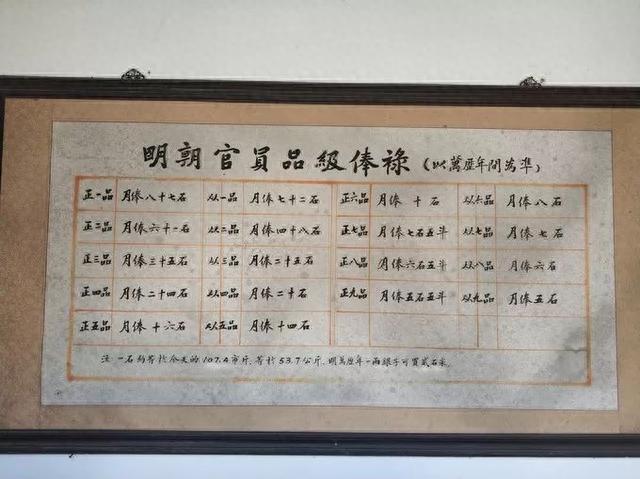 明朝官員品級俸祿（以萬歷年間為準）
正一品 月俸八十七石 从一品 月俸七十二石 正六品 月俸 十石 从六品 月俸八石
正二品 月俸六十一石 从二品 月俸四十八石 正七品 月俸七石五斗 从七品 月俸七石
正三品 月俸三十五石 从三品 月俸二十五石 正八品 月俸六石五斗 从八品 月俸六石
正四品 月俸二十四石 从四品 月俸二十石 正九品 月俸五石五斗 从九品 月俸五石
正五品 月俸 十六石 从五品 月俸十四石
注 一石約等於今天的107.4市斤、等於53.7公斤、明萬歷年一兩銀子可買貳石米。